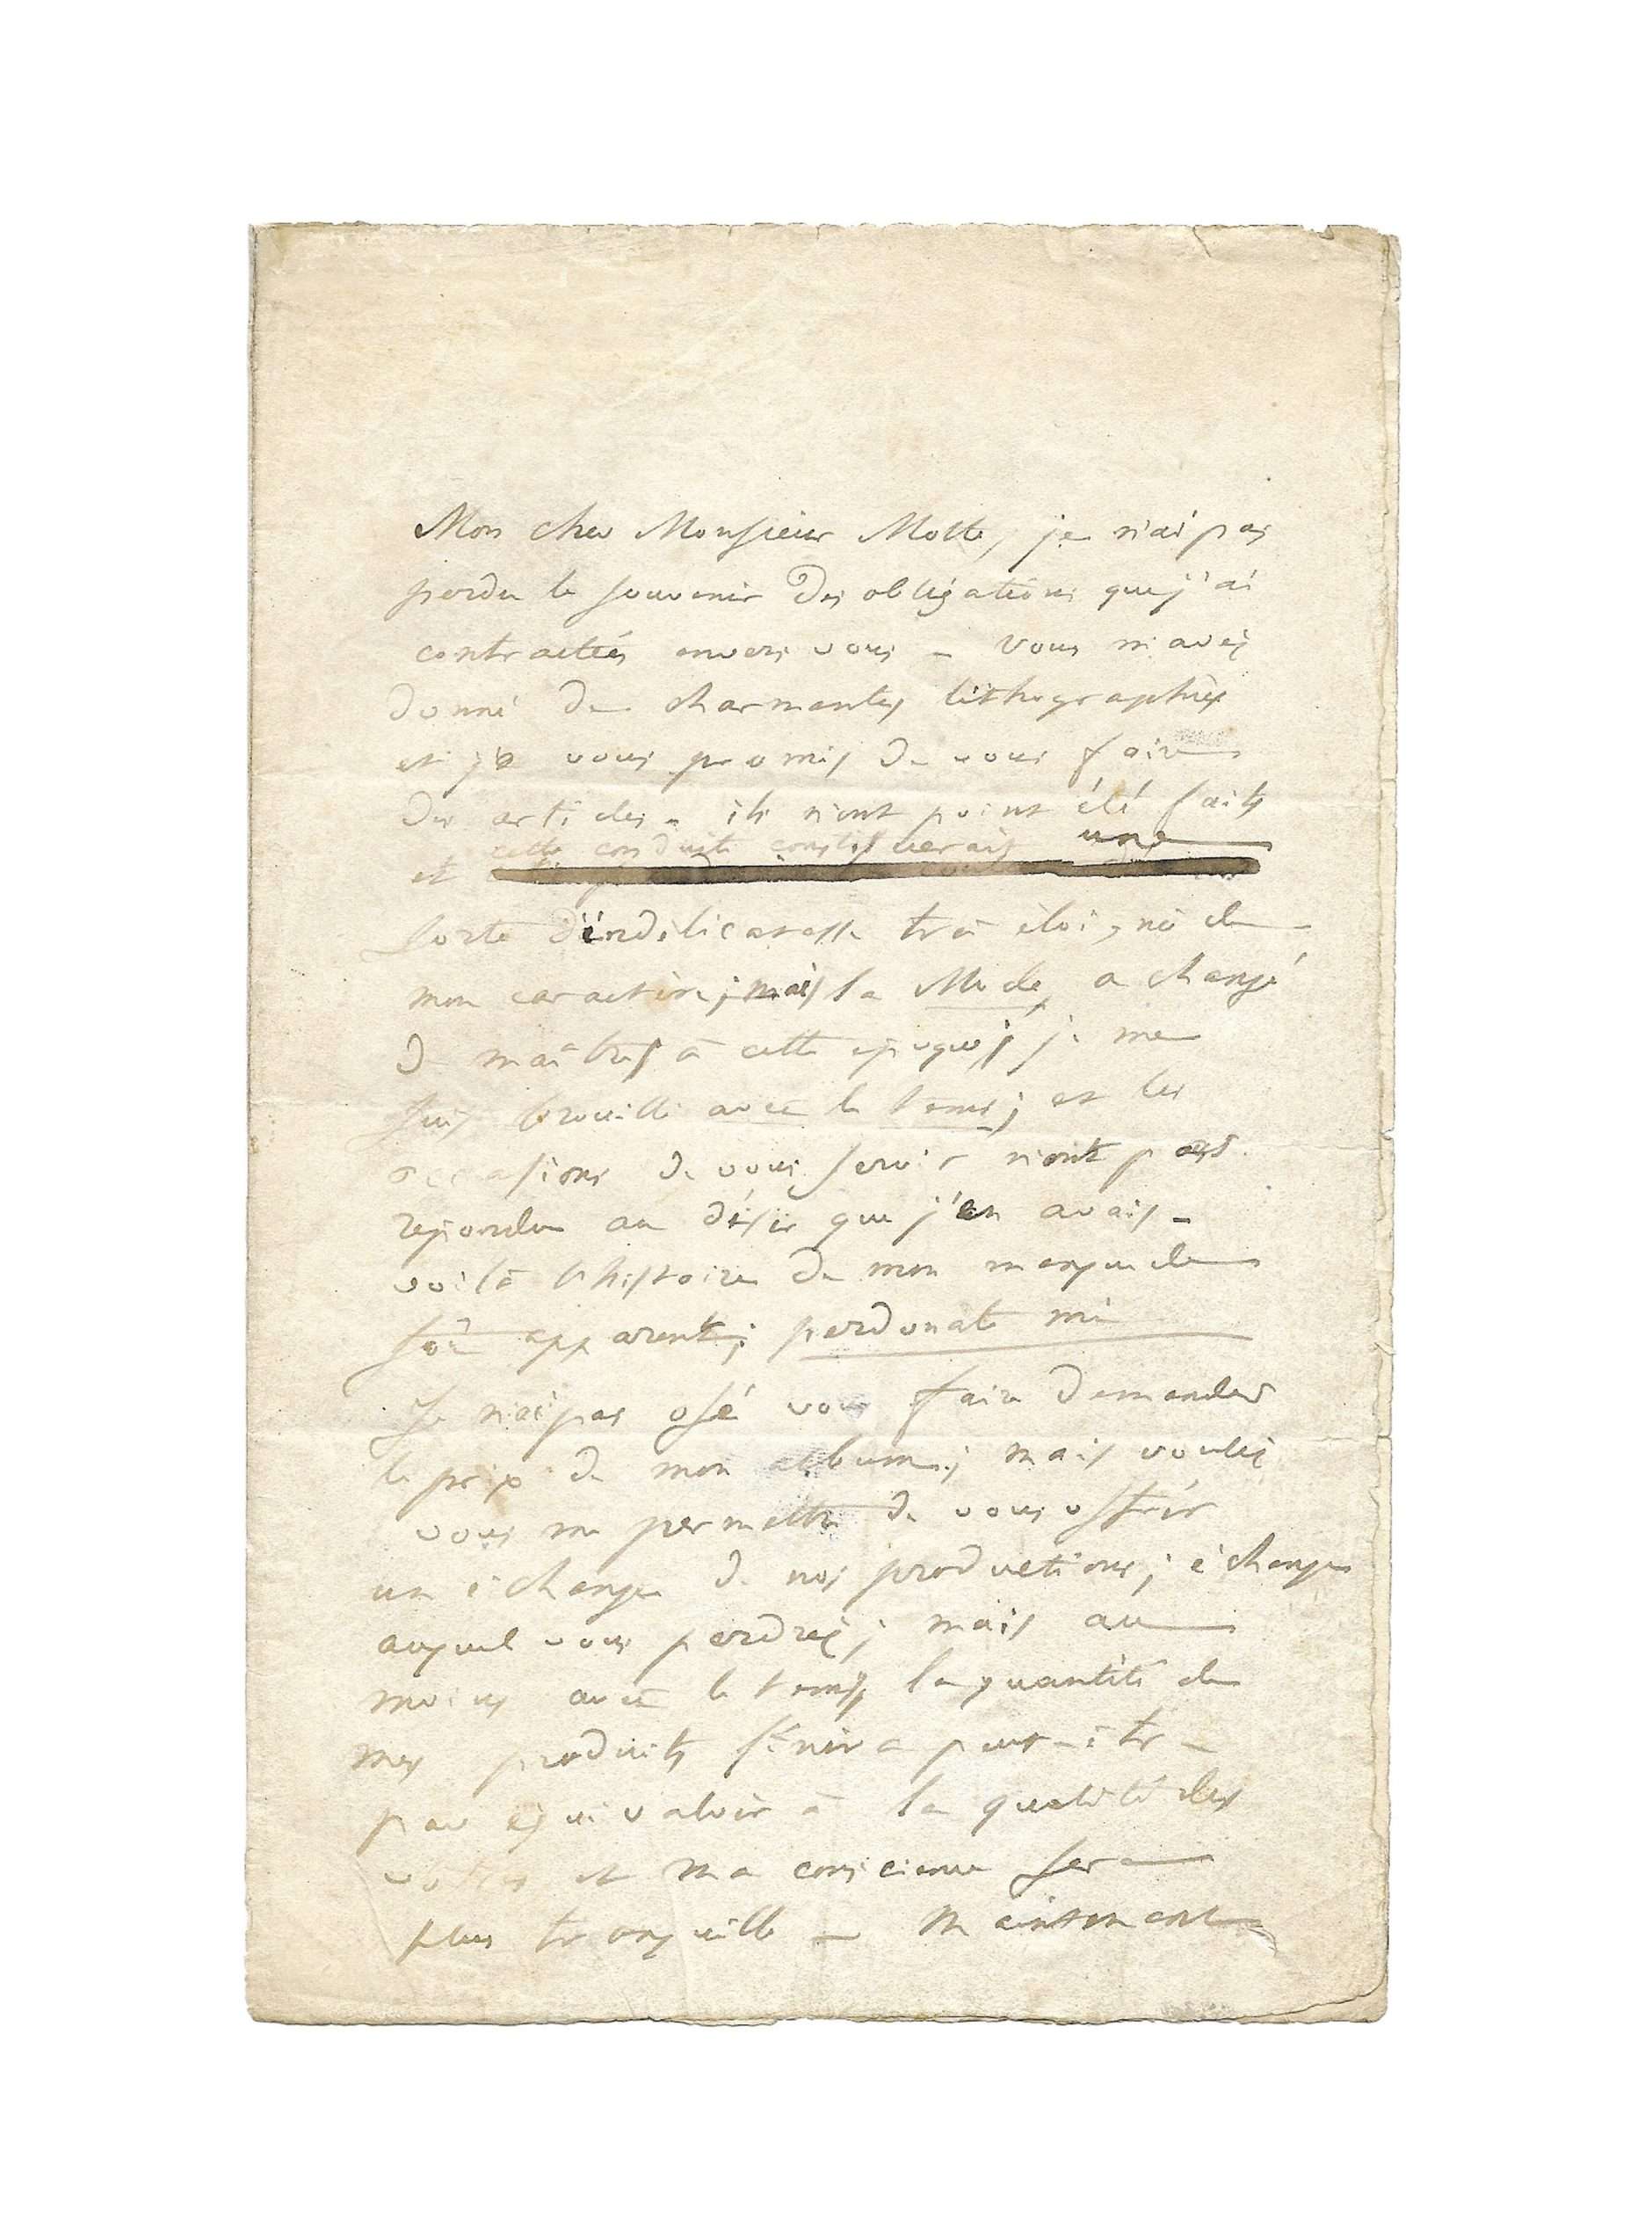 Mon cher Monsieur Motte, je n'ai pas
perdu le souvenir des obligations que j'ai
contractées envers vous – vous m'avez
donné de charmantes lithographies
et je vous promis de vous faire
des articles – ils n'ont point été faits
cette conduite constituerait une
et
sorte d'indélicatesse très éloignée de
mon caractère; mais la Mode a changé
de maîtres à cette époque; je me
suis brouillé avec le tems; et les
occasions de vous servir n'ont pas
répondu au désir que j'en avais –
voilà l'histoire de mon manque de
foi apparent; perdonate mi
Je n'ai pas osé vous faire demander
le prix de mon album; mais voulez
vous me permettre de vous offrir
un échange de nos productions; échange
auquel vous perdrez; mais au
moins avec le temps, la quantité de
mes produits finira peut-être
par équivaloir à la qualité des
vôtres et ma conscience sera
plus tranquille – Maintenant